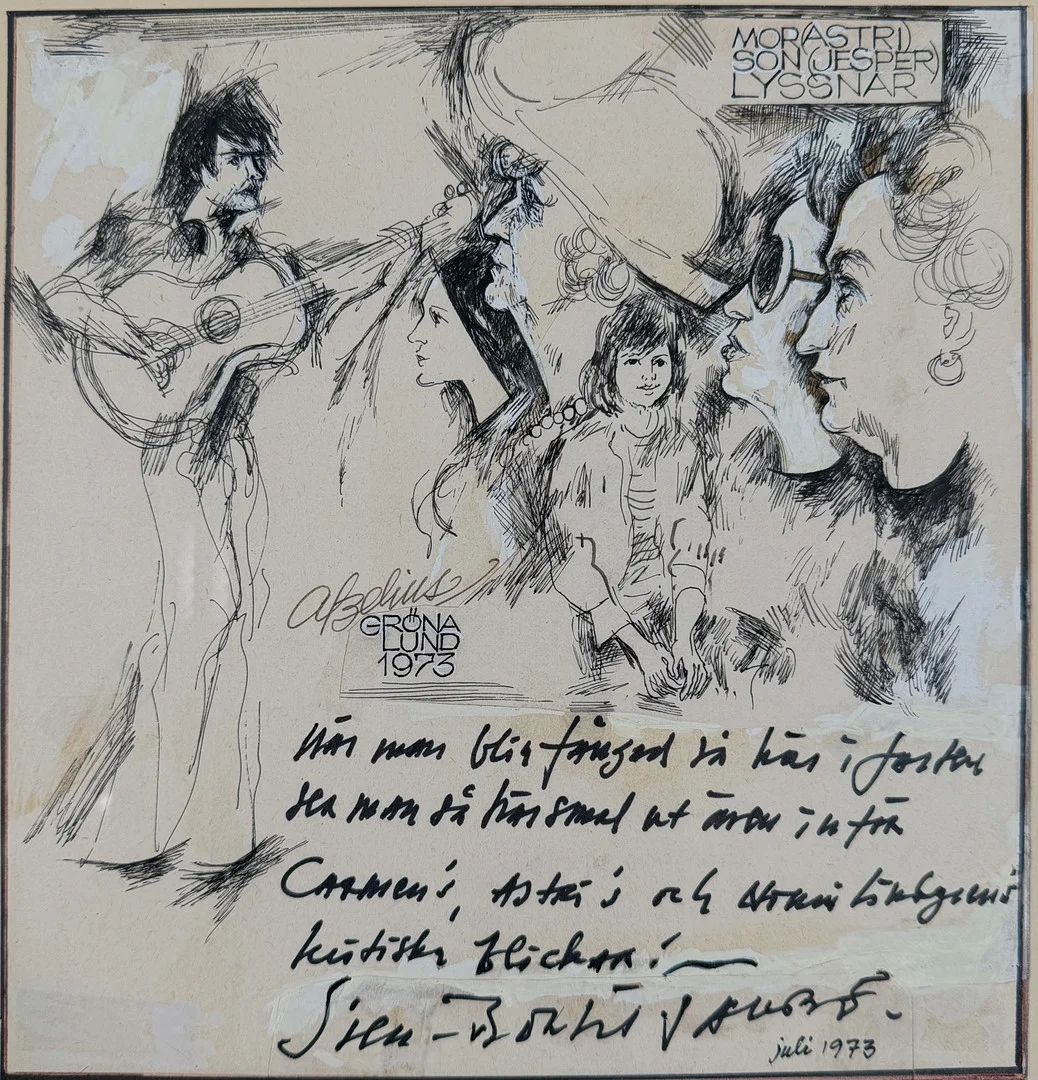 MOR(ASTRI)
SON(JESPER)
LYSSNAR
afzelius
GRÖNA
LUND
1973
När man blir fångad så här i farten
ser man så här smal ut även inför
Carmen's, Astri's och
kritiska blickar!
Sven-Bertil Taube.
juli 1973